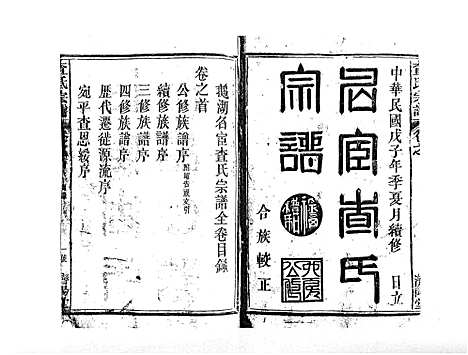 中華民國戊子年季夏月續修 日立
名宦查氏
宗譜
合族較正
鵝湖名宦查氏宗譜全卷目錄
卷之首
公修族譜序
續修族譜序
三修族譜序
四修族譜序
歷代遷徙源流序
宛平查恩綏序
查氏宗譜